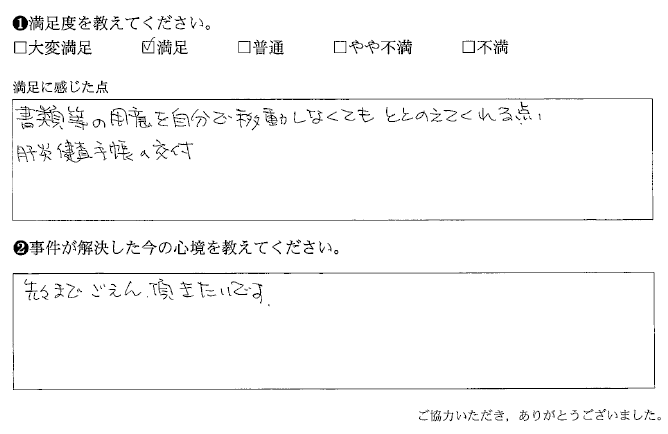 ❶満足度を教えてください。
□大変満足 ☑満足 □普通 □やや不満 □不満
満足に感じた点
書類等の用意を自分で移動しなくても ととのえてくれる点、
肝炎健査手帳の交付
❷事件が解決した今の心境を教えてください。
先々まで ごえん、頂きたいです.
ご協力いただき、ありがとうございました。